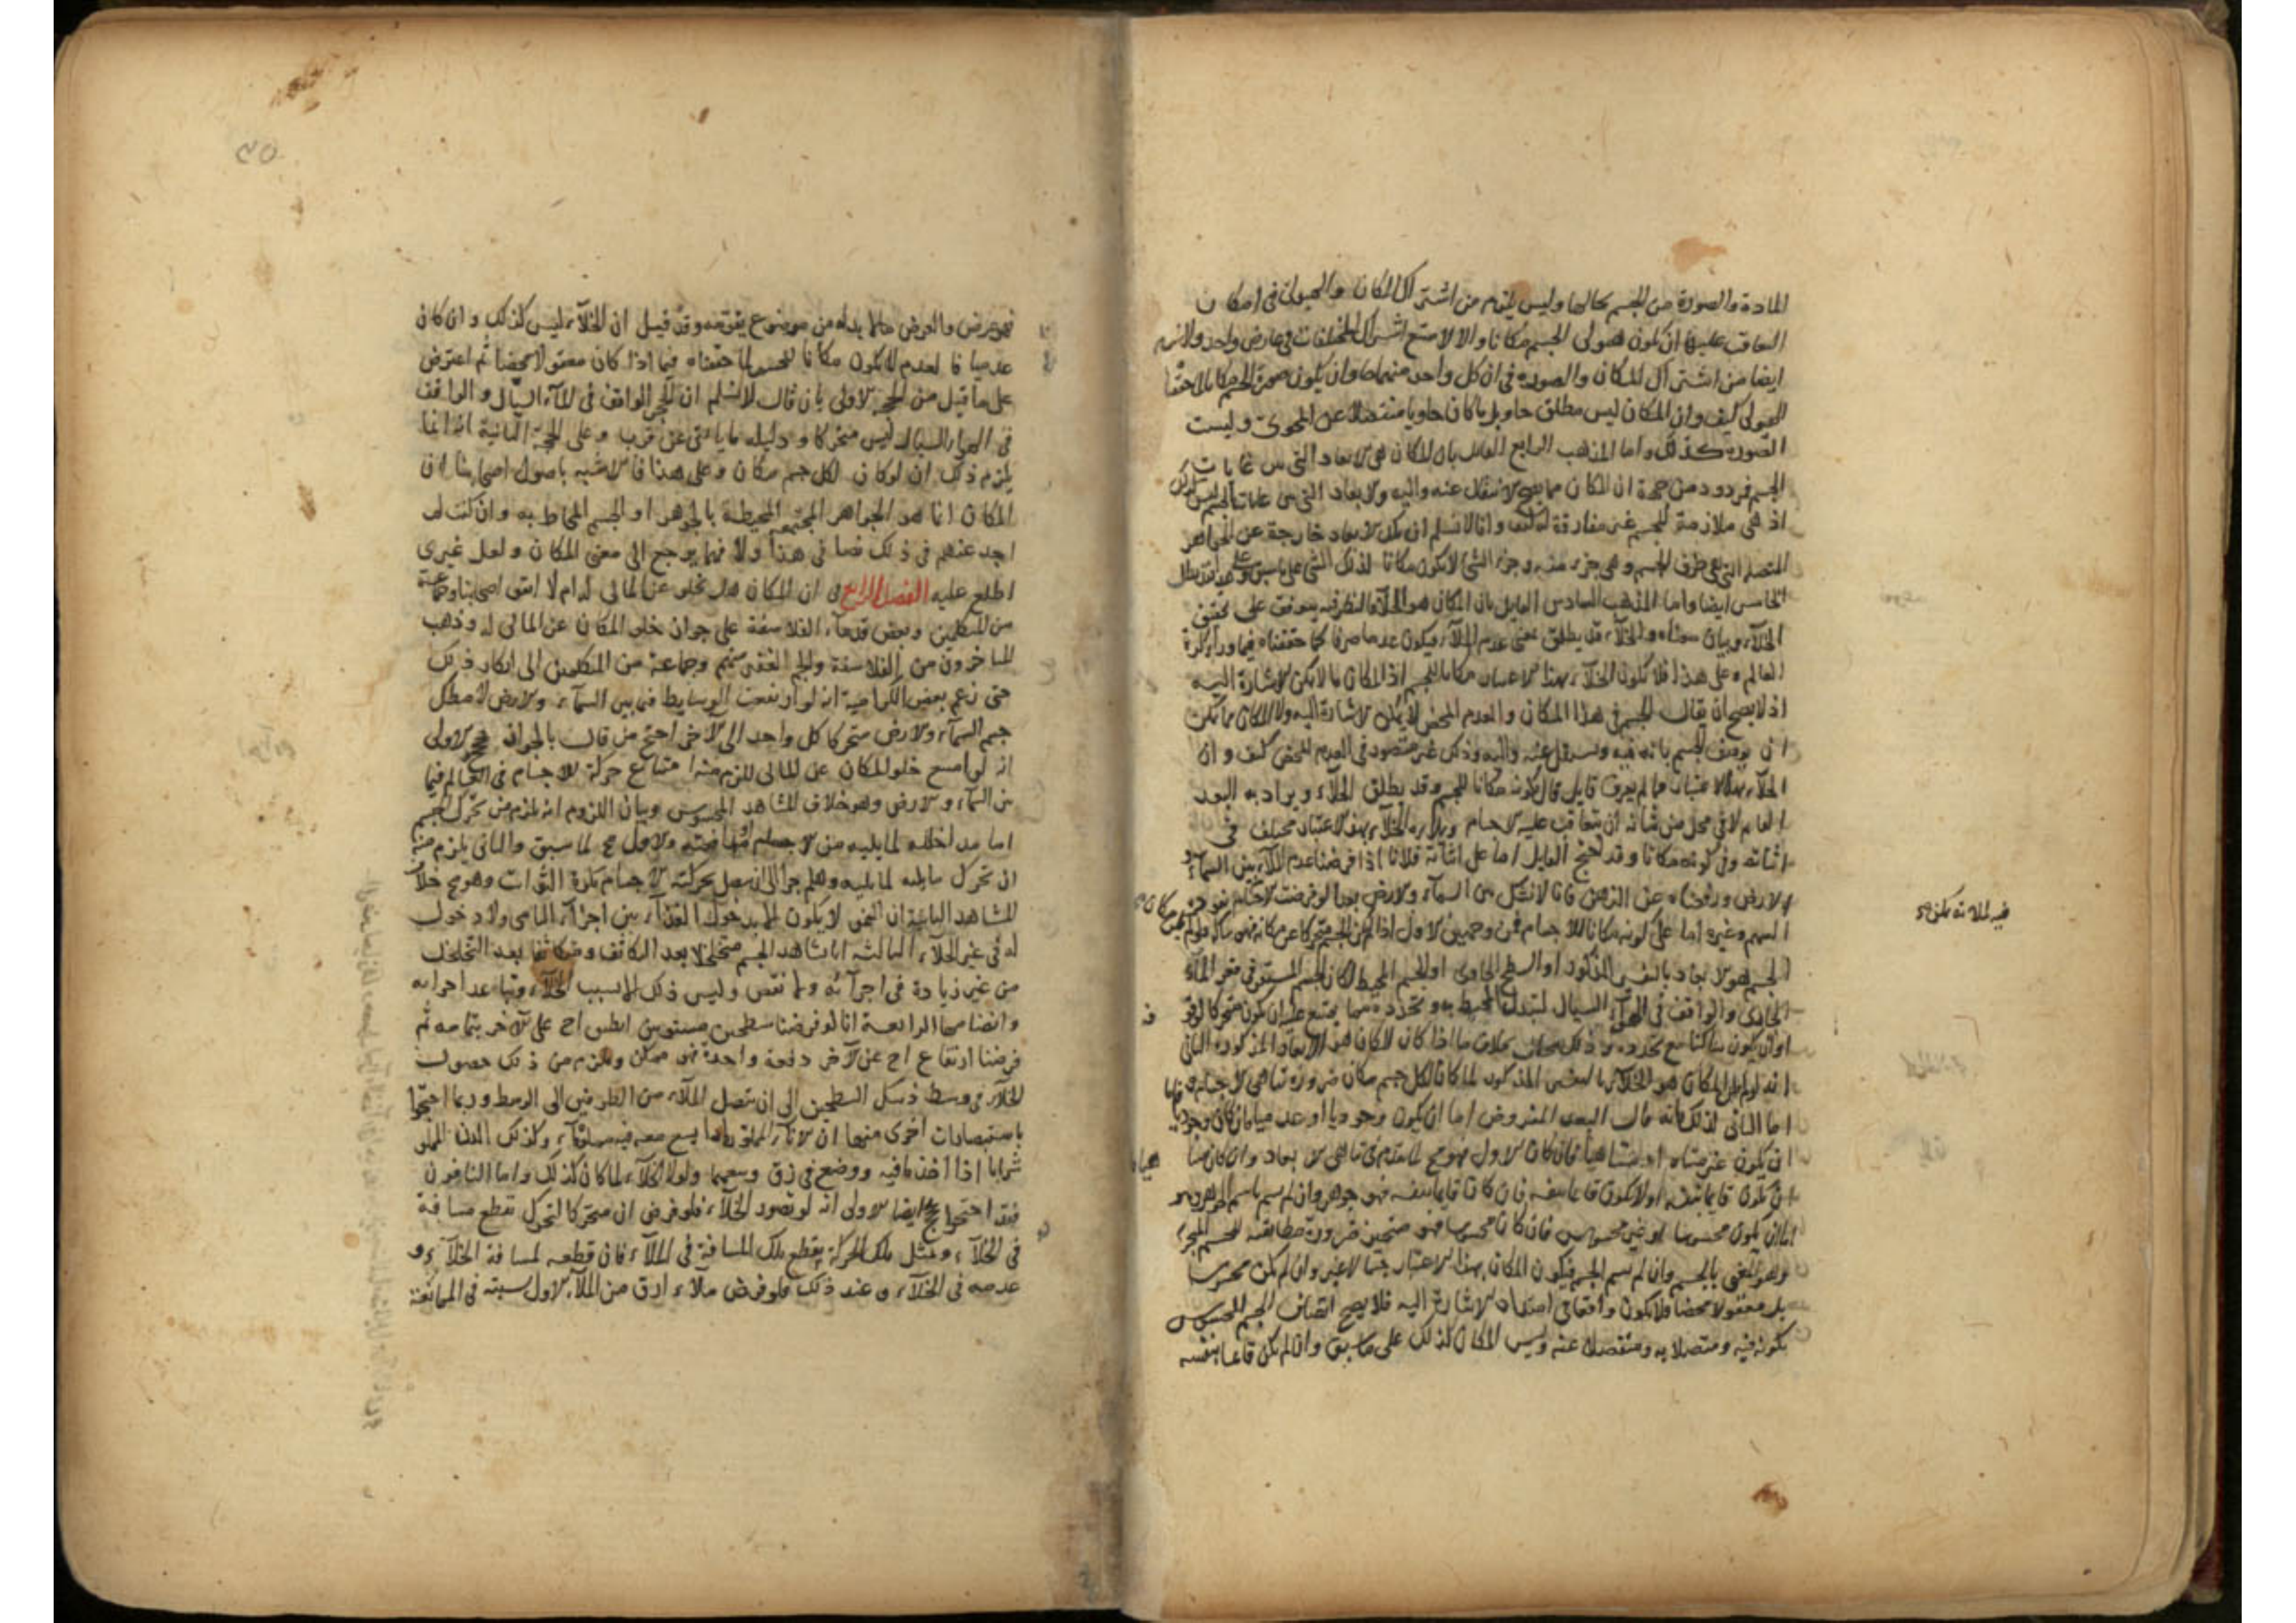 المادة والصورة من الجسم بحالها وليس يلزم من اشتراك المكان والهيولى في امكان
التعاقب عليها ان تكون هيولى الجسم مكانا والا لامتنع اشتراك المختلفات في عارض واحد ولا يلزم
ايضا من اشتراك المكان والصورة في ان كل واحد منهما حاو ان يكون صورة الجسم مكانا لاحقا
الهيولى كيف وان المكان ليس مطلق حاو بل ما كان حاويا منفصلا عن المحوى وليست
الصورة كذلك واما المذهب الرابع القايل بان المكان هى الابعاد التى بين غايات
الجسم فمردود من جهة ان المكان مما يصح الانتقال عنه واليه والابعاد التى بين غايات الجسم ليس كذلك
اذ هى ملازمة للجسم غير مفارقة له كيف وانا لا نسلم ان تلك الابعاد خارجة عن الجواهر
المتصلة التى هى طرف الجسم وهى جزء منه وجزء الشئ لا يكون مكانا لذلك الشئ على ما سبق
الخامس ايضا واما المذهب السادس القايل بان المكان هو الخلآء فالنظر فيه يتوقف على تحقيق
الخلآء وبيان معناه والخلآء قد يطلق بمعنى عدم الملآء فيكون عدما صرفا كما حققناه فيما وراء كرة
العالم وعلى هذا فلا يكون الخلآء بهذا الاعتبار مكانا للجسم اذ المكان ما لا يمكن الاشارة اليه
اذ لا يصح ان يقال الجسم في هذا المكان والعدم المحض لا يمكن الاشارة اليه ولا المكان مما يمكن
ان يوصف الجسم بانه فيه ومنتقل عنه واليه وذلك غير متصور في العدم المحض كيف وان
الخلآء بهذا الاعتبار مما لم يعرف قايل قال بكونه مكانا للجسم وقد يطلق الخلآء ويراد به البعد
القايم لا في محل من شانه ان يتعاقب عليه الاجسام والخلآء بهذا الاعتبار مختلف في
اثباته وفي كونه مكانا وقد احتج القايل اما على اثباته فلانا اذا فرضنا عدم الملآء بين السمآء
والارض ورفعناه عن الذهن فانا لا نشك بين السمآء والارض بعدا لو فرضت الاجسام
السهم وغيره اما على كونه مكانا للاجسام فمن وجهين الاول اذا لم يكن الجسم متحركا عن مكانه فهو ساكن
الجسم هو الابعاد بالتفسير المذكور او السطح الحاوى او الجسم المحيط لكان الجسم المستقر في مقر المآء
الجارى والواقف في الهوآء السيال لتبدل المحيط به وتجدده مما يمتنع عليه ان يكون متحركا
او ان يكون ساكنا مع تجدده وذلك محال بخلاف ما اذا كان المكان هو الابعاد المذكورة الثانى
انه لو لم يكن المكان هو الخلآء بالتفسير المذكور لما كان لكل جسم مكان ضرورة تناهى الاجسام
اما الثانى لذلك فانه قال البعد المفروض اما ان يكون وجوديا او عدميا فان كان وجوديا
ان يكون غير متناه او متناهيا فان كان الاول فهو مح لما تقدم في تناهى الابعاد وان كان متناهيا
ان يكون قايما بنفسه اولا يكون قايما بنفسه فان كان قايما بنفسه فهو جوهر وان لم يسم باسم الجوهر
اما ان يكون محسوسا او غير محسوس فان كان محسوسا فهو متحيز ضرورة مطابقته للجسم المتحيز
وهو المعنى بالجسم وان لم يسم الجسم فيكون المكان بهذا الاعتبار جسما لا غير وان لم يكن محسوسا
بل معقولا محضا فلا يكون واقعا في امتداد الاشارة اليه فلا يصح اتصاف الجسم المحسوس
بكونه فيه ومتصلا به ومنفصلا عنه وليس المكان كذلك على ما سبق وان لم يكن قايما بنفسه
فيه لملاته يمكن
٣٥
فهو عرض والعرض مما لا بد له من موضوع يقومه وقد قيل ان الخلآء ليس كذلك وان كان
عدميا فالعدم لا يكون مكانا للجسم لما حققناه فيما اذا كان معقولا محضا ثم اعترض
على ما قيل من الحجة الاولى بان قال لا نسلم ان الحجر الواقف في المآء السيال والواقف
في الهوآء السيال ليس متحركا ودليله ما ياتى عن قرب وعلى الحجة الثانية انه انما
يلزم ذلك ان لو كان لكل جسم مكان وعلى هذا فالاشبه باصول اصحابنا ان
المكان انما هو الجواهر المجتمعة المحيطة بالجوهر او الجسم المحاط به وان كنت لم
اجد عنهم في ذلك نصا في هذا ولا فيما يرجع الى معنى المكان ولعل غيرى
اطلع عليه الفصل الرابع في ان المكان هل يخلو عن المالى له ام لا اتفق اصحابنا وجماعة
من المتكلمين وبعض قدمآء الفلاسفة على جواز خلو المكان عن المالى له وذهب
المتاخرون من الفلاسفة والجم الغفير منهم وجماعة من المتكلمين الى انكار ذلك
حتى زعم بعض الكرامية انه لو ارتفعت الوسايط فيما بين السمآء والارض
جسم السمآء والارض متحركا كل واحد الى الاخر احتج من قال بالجواز بحجج الاولى
انه لو امتنع خلو المكان عن المالى للزم منه امتناع حركة الاجسام في العالم فيما
بين السمآء والارض وهو خلاف المشاهد المحسوس وبيان اللزوم انه يلزم من تحرك الجسم
اما مداخلته لما يليه من الاجسام او مدافعته والاول مح لما سبق والثانى يلزم منه
ان تحرك ما يليه لما يليه وهلم جرا الى ان يتصل بحركته الاجسام بكرة الثوابت وهو مح خلاف
المشاهد الثانية ان النمو لا يكون الا بدخول الغذآء بين اجزآء النامى ولا دخول
له في غير الخلآء الثالثة انا نشاهد الجسم متخلخلا بعد التكاثف ومتكاثفا بعد التخلخل
من غير زيادة في اجزآئه ولا نقص وليس ذلك الا بسبب الخلآء وتباعد اجزائه
وانضمامها الرابعة انا لو فرضنا سطحين مستويين انطبق احدهما على الاخر بتمامه ثم
فرضنا ارتفاع احدهما عن الاخر دفعة واحدة فهو ممكن ويلزم من ذلك حصول
الخلآء في وسط ذينك السطحين الى ان يتصل الملآء من الطرفين الى الوسط وربما احتجوا
باستبصارات اخرى منها ان الانآء المملو رمادا يسع معه فيه ملؤه مآء وكذلك الدن المملو
شرابا اذا اخذ ما فيه ووضع في زق وسعهما ولولا الخلآء لما كان كذلك واما النافون
فقد احتجوا بحجج ايضا الاولى انه لو تصور الخلآء فلو فرض ان متحركا لتحرك بقطع مسافة
في الخلآء وبمثل تلك الحركة يقطع تلك المسافة في الملآء فان قطعه لمسافة الخلآء و
عدمه في الخلآء وعند ذلك فلو فرض ملآء ارق من الملآء الاول نسبته في الممانعة